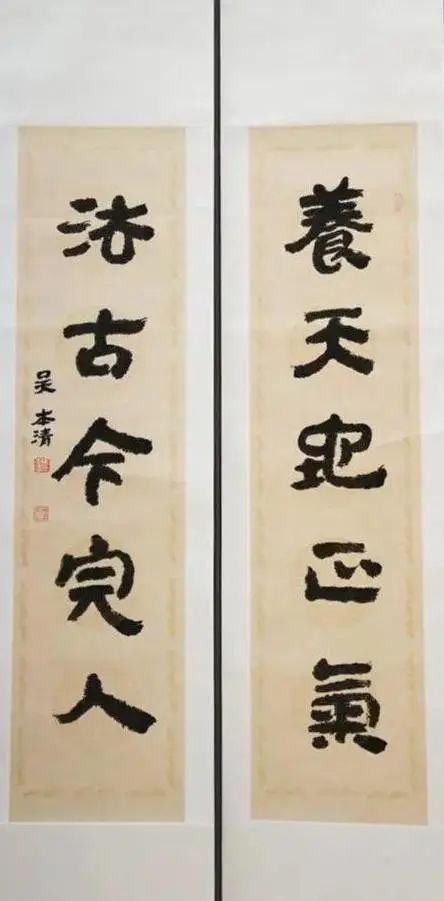 養天地正氣
法古今完人
吴本清